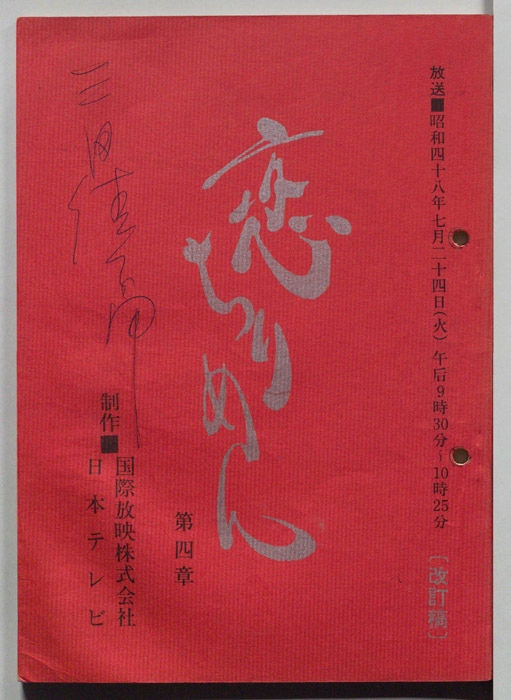 放送■昭和四十八年七月二十四日(火)午后9時30分~10時25分
〔改訂稿〕
恋ちりめん
第四章
制作■国際放映株式会社
日本テレビ